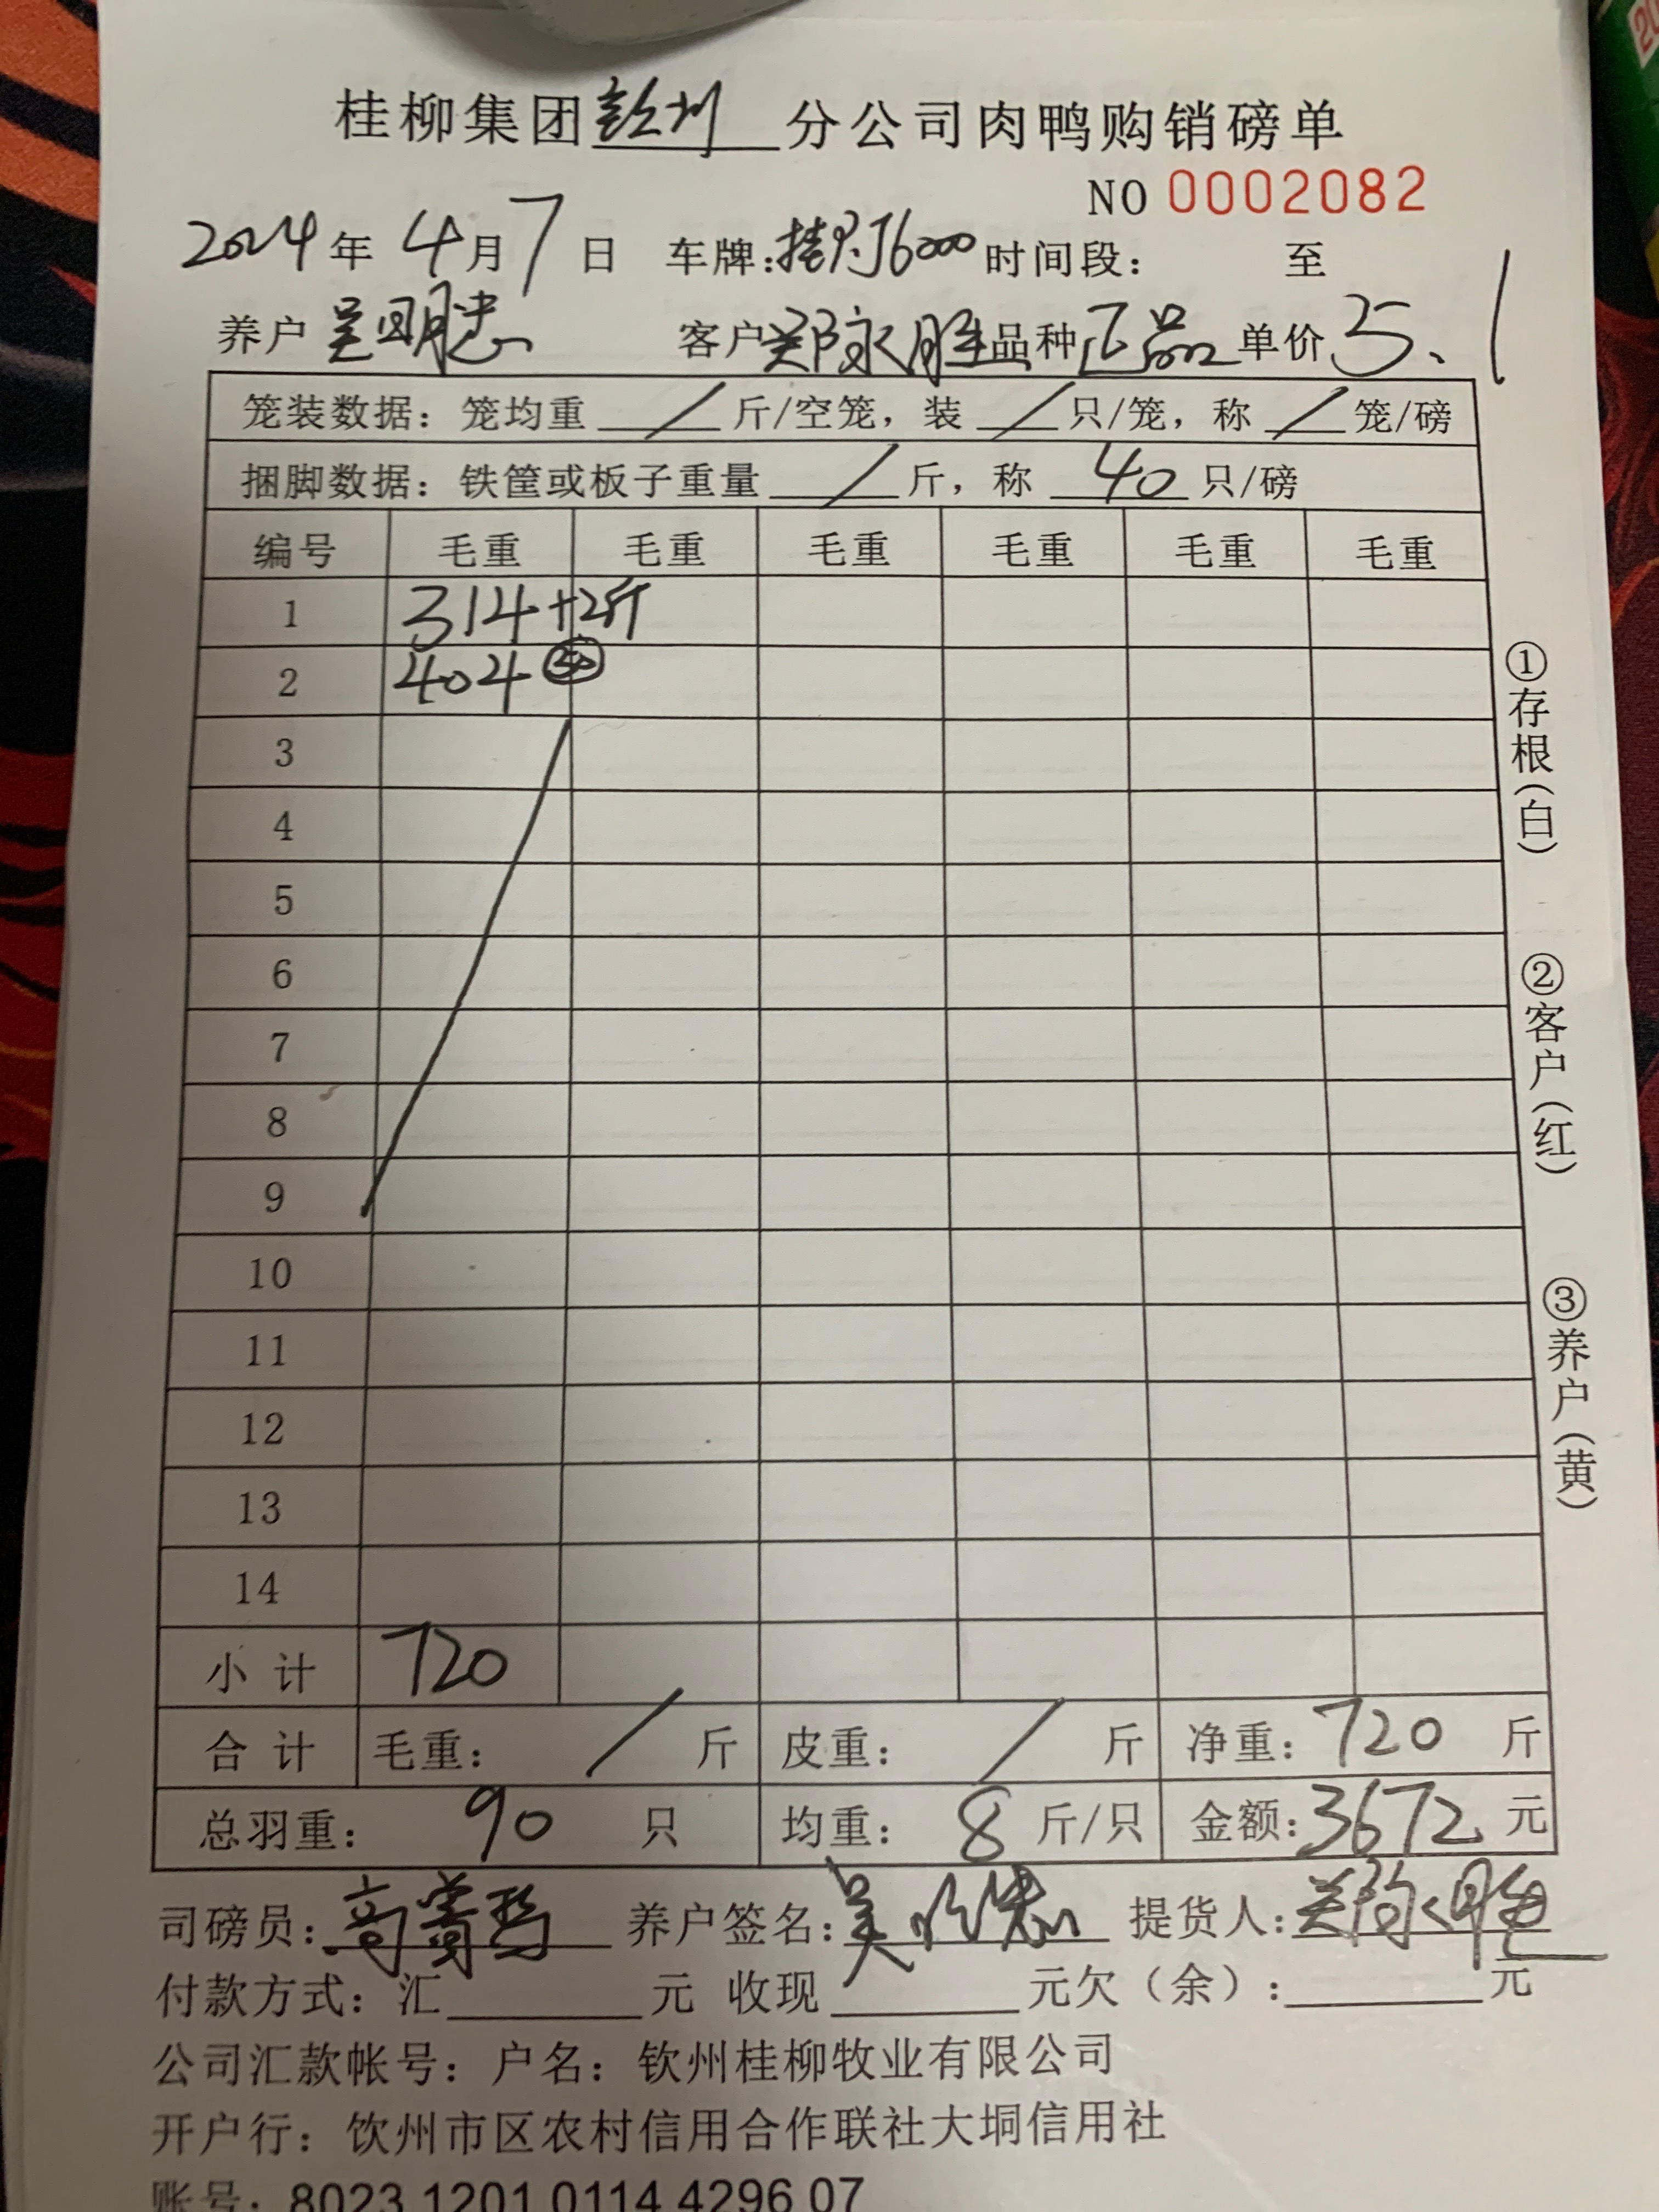 桂柳集团钦州分公司肉鸭购销磅单
NO 0002082
2024年 4月7日 车牌: 时间段： 至
养户 吴明忠 客户 郑永胜 品种 正品 单价 5.1
笼装数据：笼均重 / 斤/空笼，装 / 只/笼，称 / 笼/磅
捆脚数据：铁筐或板子重量 / 斤，称 40 只/磅
编号 毛重 毛重 毛重 毛重 毛重 毛重
1 314+2斤
2 404 50
3
4
5
6
7
8
9
10
11
12
13
14
小计 720
合计 毛重： / 斤 皮重： / 斤 净重：720 斤
总羽重： 90 只 均重： 8 斤/只 金额：3672 元
司磅员： 养户签名：吴明忠 提货人：郑永胜
付款方式：汇 元 收现 元欠（余）: 元
公司汇款帐号：户名：钦州桂柳牧业有限公司
开户行：钦州市区农村信用合作联社大垌信用社
账号：8023 1201 0114 4296 07
①存根（白）
②客户（红）
③养户（黄）
20